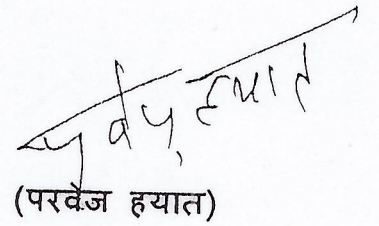 पर्वेज़ हयात
(परवेज हयात)